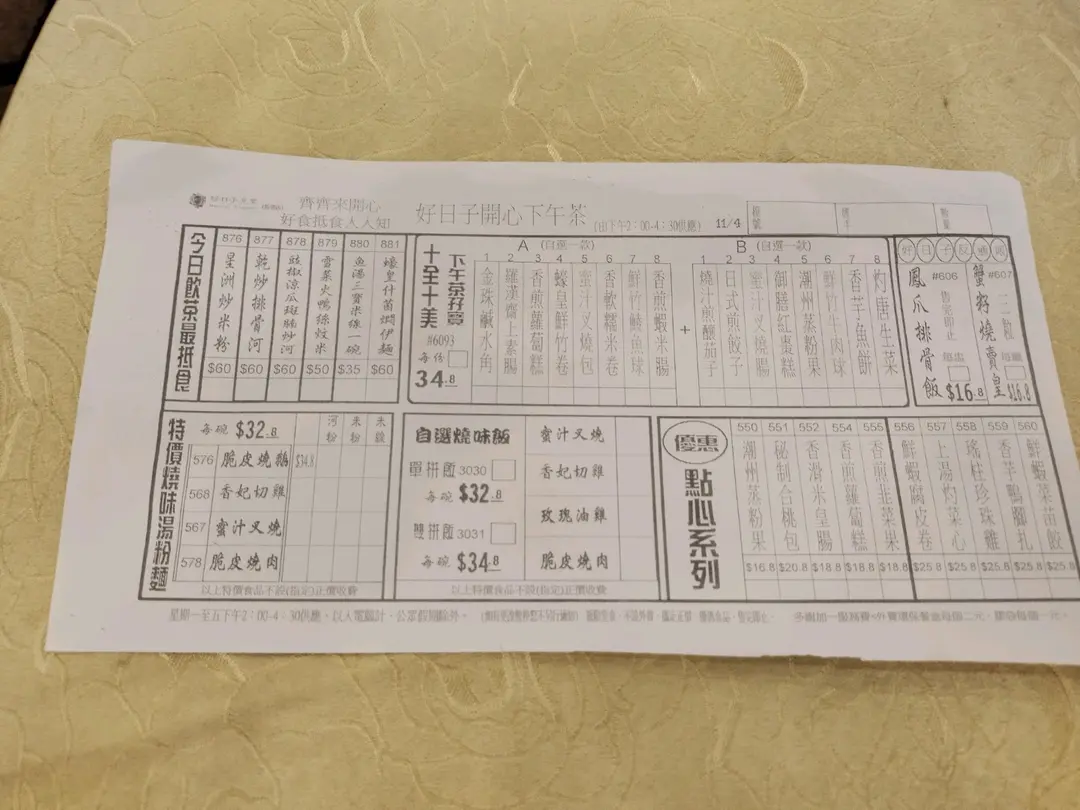 齊齊來開心
好食抵食人人知
好日子開心下午茶
(由下午2:00-4:30供應)
11/4
今日飲茶最抵食
876 星洲炒米粉 $60
877 乾炒排骨河 $60
878 豉椒涼瓜斑腩炒河 $60
879 雪菜火鴨絲炆米 $50
880 魚湯三寶米線一碗 $35
881 蠔皇什菌燜伊麵 $60
十全十美
下午茶孖寶
#6093
每份
34.8
A (自選一款)
1 金珠鹹水角
2 羅漢齋上素腸
3 香煎蘿蔔糕
4 蠔皇鮮竹卷
5 蜜汁叉燒包
6 香軟糯米卷
7 鮮竹鯪魚球
8 香煎蝦米腸
+
B (自選一款)
1 燒汁煎釀茄子
2 日式煎餃子
3 蜜汁叉燒腸
4 御膳紅棗糕
5 潮州蒸粉果
6 鮮竹牛肉球
7 香芋魚餅
8 灼唐生菜
好日子
#606
鳳爪排骨飯
售完即止
$16.8
#607
蟹籽燒賣皇
三粒
$16.8
特價燒味湯粉麵
每碗 $32.8
河粉
米粉
米線
576 脆皮燒鵝 $34.8
568 香妃切雞
567 蜜汁叉燒
578 脆皮燒肉
以上特價食品不設(指定)正價收費
自選燒味飯
單拼飯 3030
每碗 $32.8
雙拼飯 3031
每碗 $34.8
蜜汁叉燒
香妃切雞
玫瑰油雞
脆皮燒肉
以上特價食品不設(指定)正價收費
優惠
點心系列
550 潮州蒸粉果 $16.8
551 秘制合桃包 $20.8
552 香滑米皇腸 $18.8
554 香煎蘿蔔糕 $18.8
555 香煎韭菜果 $18.8
556 鮮蝦腐皮卷 $25.8
557 上湯灼菜心 $25.8
558 瑤柱珍珠雞 $25.8
559 香芋鴨腳扎 $25.8
560 鮮蝦菜苗餃 $25.8
星期一至五下午2:00-4:30供應,以入電腦計,公眾假期除外。